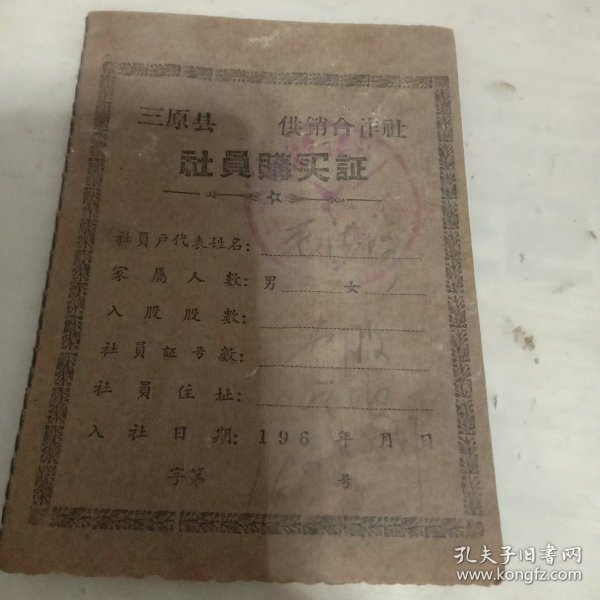 三原县 供銷合作社
社員購买証
社員戶代表姓名:
家屬人數: 男 女
入股股數:
社員証号數:
社員住址:
入社日期: 196 年 月 日
字第 号
孔夫子旧书网
www.kongfz.com